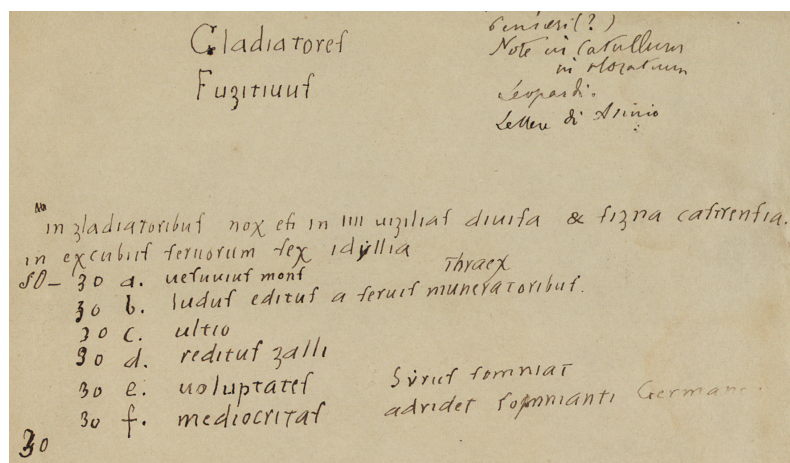 Gladiatores
Fugitiuus
Pensieri (?)
Note in Catullum
in Horatium
Leopardi.
Lettere di Asinio
in gladiatoribus nox est in IIII uigilias diuisa & signa castrensia.
in excubiis seruorum sex idyllia
50 - 30 a. uesuuius mons
Thraex
30 b. ludus editus a seruis muneratoribus.
30 c. ultio
30 d. reditus galli
30 e. uoluptates Syrus somniat
30 f. mediocritas adridet somnianti Germano.
30